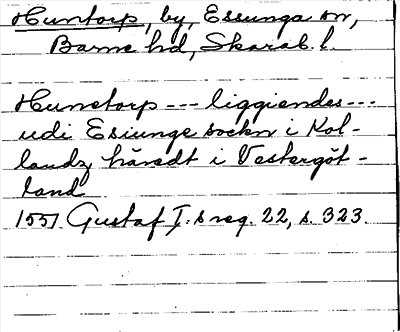 Huntorp, by, Essunga sn,
Barne hd, Skarab. l.
Hunetorp --- liggiendes ---
udi Esiunge sockn i Kol-
landz häredt i Vestergöt-
land
1551 Gustaf I:s reg. 22, s. 323.